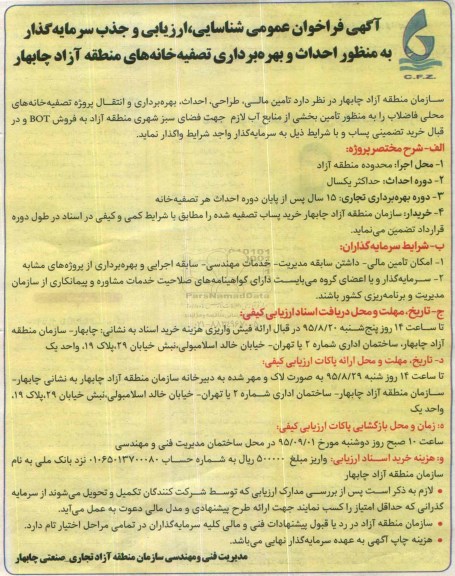 آگهی فراخوان عمومی شناسایی،ارزیابی و جذب سرمایه‌گذار
به منظور احداث و بهره‌برداری تصفیه‌خانه‌های منطقه آزاد چابهار
C.F.Z.
سازمان منطقه آزاد چابهار در نظر دارد تامین مالی، طراحی، احداث، بهره‌برداری و انتقال پروژه تصفیه‌خانه‌های
محلی فاضلاب را به منظور تأمین بخشی از منابع آب لازم جهت فضای سبز شهری منطقه آزاد به فروش BOT و در
قبال خرید تضمینی پساب و با شرایط ذیل به سرمایه‌گذار واجد شرایط واگذار نماید.
الف- شرح مختصر پروژه:
۱- محل اجرا: محدوده منطقه آزاد
۲- دوره احداث: حداکثر یکسال
۳- دوره بهره‌برداری تجاری: ۱۵ سال پس از پایان دوره احداث هر تصفیه‌خانه
۴- خریدار: سازمان منطقه آزاد چابهار خرید پساب تصفیه شده را مطابق با شرایط کمی و کیفی در اسناد در طول دوره
قرارداد تضمین می‌نماید.
ب- شرایط سرمایه‌گذاران:
۱- امکان تأمین مالی- داشتن سابقه مدیریت- خدمات مهندسی- سابقه اجرایی و بهره‌برداری از پروژه‌های مشابه
۲- سرمایه‌گذار و یا اعضای گروه می‌بایست دارای گواهینامه‌های صلاحیت خدمات مشاوره و پیمانکاری از سازمان
مدیریت و برنامه‌ریزی کشور باشند.
ParsNamadData
ج- تاریخ، مهلت و محل دریافت اسناد ارزیابی کیفی:
تا ساعت ۱۴ روز پنج‌شنبه ۹۵/۸/۲۰ در قبال ارائه فیش واریزی هزینه خرید اسناد به نشانی: چابهار- سازمان منطقه
آزاد چابهار، ساختمان اداری شماره ۲ یا تهران- خیابان خالد اسلامبولی،نبش خیابان ۲۹،پلاک ۱۹، واحد یک
د- تاریخ، مهلت و محل ارائه پاکات ارزیابی کیفی:
تا ساعت ۱۴ روز شنبه ۹۵/۸/۲۹ به صورت لاک و مهر شده به دبیرخانه سازمان منطقه آزاد چابهار به نشانی چابهار-
سازمان منطقه آزاد چابهار- ساختمان اداری شماره ۲ یا تهران- خیابان خالد اسلامبولی،نبش خیابان ۲۹،پلاک ۱۹،
واحد یک
ه: زمان و محل بازگشایی پاکات ارزیابی کیفی:
ساعت ۱۰ صبح روز دوشنبه مورخ ۹۵/۰۹/۰۱ در محل ساختمان مدیریت فنی و مهندسی
و: هزینه خرید اسناد ارزیابی: واریز مبلغ ۵۰۰۰۰۰ ریال به شماره حساب ۰۱۰۶۵۰۱۳۷۰۰۰۸۰ نزد بانک ملی به نام
سازمان منطقه آزاد چابهار
• لازم به ذکر است پس از بررسی مدارک ارزیابی که توسط شرکت کنندگان تکمیل و تحویل می‌شوند از سرمایه
گذرانی که حداقل امتیاز را کسب نمایند جهت ارائه طرح پیشنهادی و مدل مالی دعوت به عمل می‌آید.
• سازمان منطقه آزاد در رد یا قبول پیشنهادات فنی و مالی کلیه سرمایه‌گذاران در تمامی مراحل اختیار تام دارد.
• هزینه چاپ آگهی به عهده سرمایه‌گذار نهایی می‌باشد.
مدیریت فنی و مهندسی سازمان منطقه آزاد تجاری_صنعتی چابهار